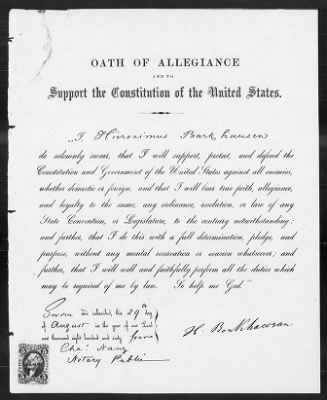 OATH OF ALLEGIANCE
AND TO
Support the Constitution of the United States.
„I, Hieronimus Barkhausen
do solemnly swear, that I will support, protect, and defend the
Constitution and Government of the United States against all enemies,
whether domestic or foreign, and that I will bear true faith, allegiance,
and loyalty to the same, any ordinance, resolution, or law of any
State Convention, or Legislature, to the contrary notwithstanding;
and further, that I do this with a full determination, pledge, and
purpose, without any mental reservation or evasion whatsoever; and
further, that I will well and faithfully perform all the duties which
may be required of me by law. So help me God."
Sworn and subscribed, this 29th day
of August in the year of our Lord
one thousand eight hundred and sixty four
Chas.
Notary Public
H. Barkhausen